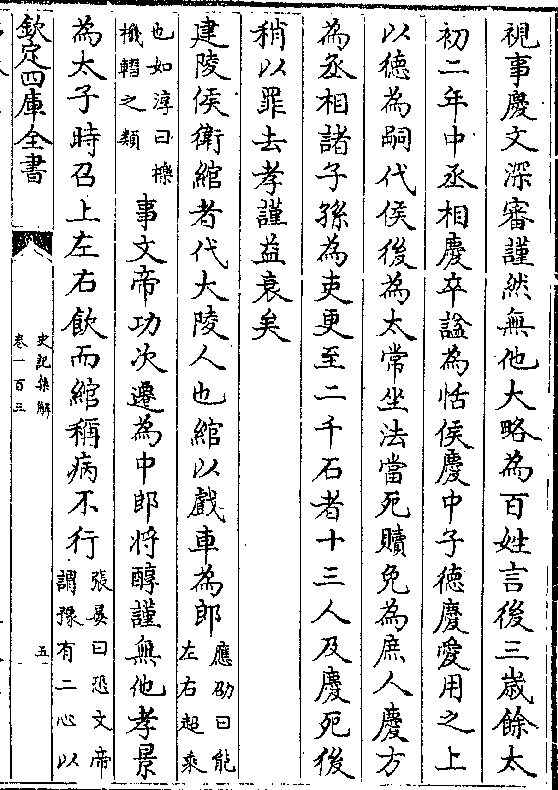 視事慶文深審謹然無他大略為百姓言後三歲餘太
初二年中丞相慶卒諡為恬侯慶中子德慶愛用之上
以德為嗣代侯後為太常坐法當死贖免為庶人慶方
為丞相諸子孫為吏更至二千石者十三人及慶死後
稍以罪去孝謹益衰矣
建陵侯衛綰者代大陵人也綰以戲車為郎應劭曰能左右超乘
也如淳曰櫟機轊之類事文帝功次遷為中郎將醇謹無他孝景
為太子時召上左右飲而綰稱病不行張晏曰恐文帝謂豫有二心以
欽定四庫全書
史記集解
卷一百三
五